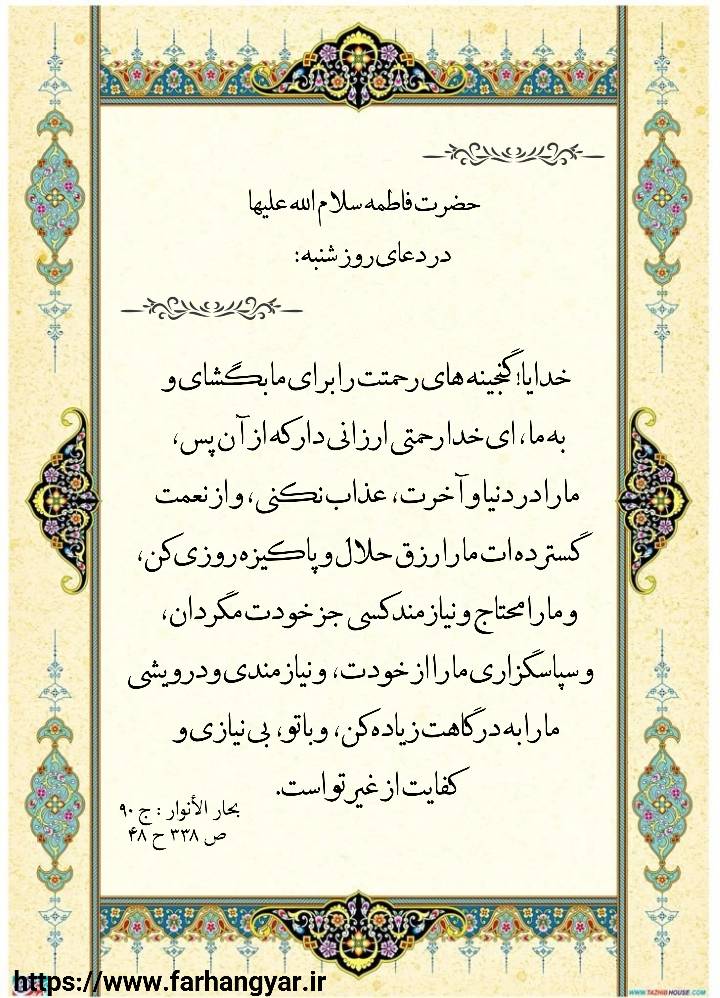 حضرت فاطمه سلام الله علیها
در دعای روز شنبه:
خدایا! گنجینه های رحمتت را برای ما بگشای و
به ما، ای خدا رحمتی ارزانی دار که از آن پس،
ما را در دنیا و آخرت، عذاب نکنی، و از نعمت
گسترده ات ما را رزق حلال و پاکیزه روزی کن،
و ما را محتاج و نیازمند کسی جز خودت مگردان،
و سپاسگزاری ما را از خودت، و نیازمندی و درویشی
ما را به درگاهت زیاده کن، و با تو، بی نیازی و
کفایت از غیر تو است.
بحار الأنوار : ج ۹۰
ص ۳۳۸ ح ۴۸
https://www.farhangyar.ir
WWW.TAZHIBHOUSE.COM